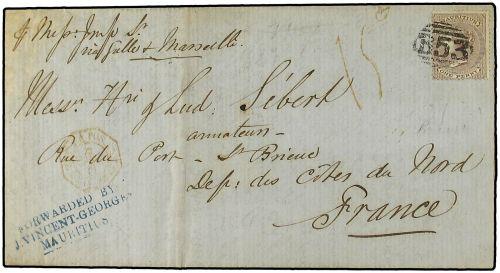 p Messies Imp Ss
via Galle & Marseille.
B53
MAURITIUS
ONE PENNY
15
Messrs Hri & Lud. Sébert
armateurs
Rue du Port - St Brieuc
Dep: des Côtes du Nord
France
FORWARDED BY
J. VINCENT-GEORGES
MAURITIUS